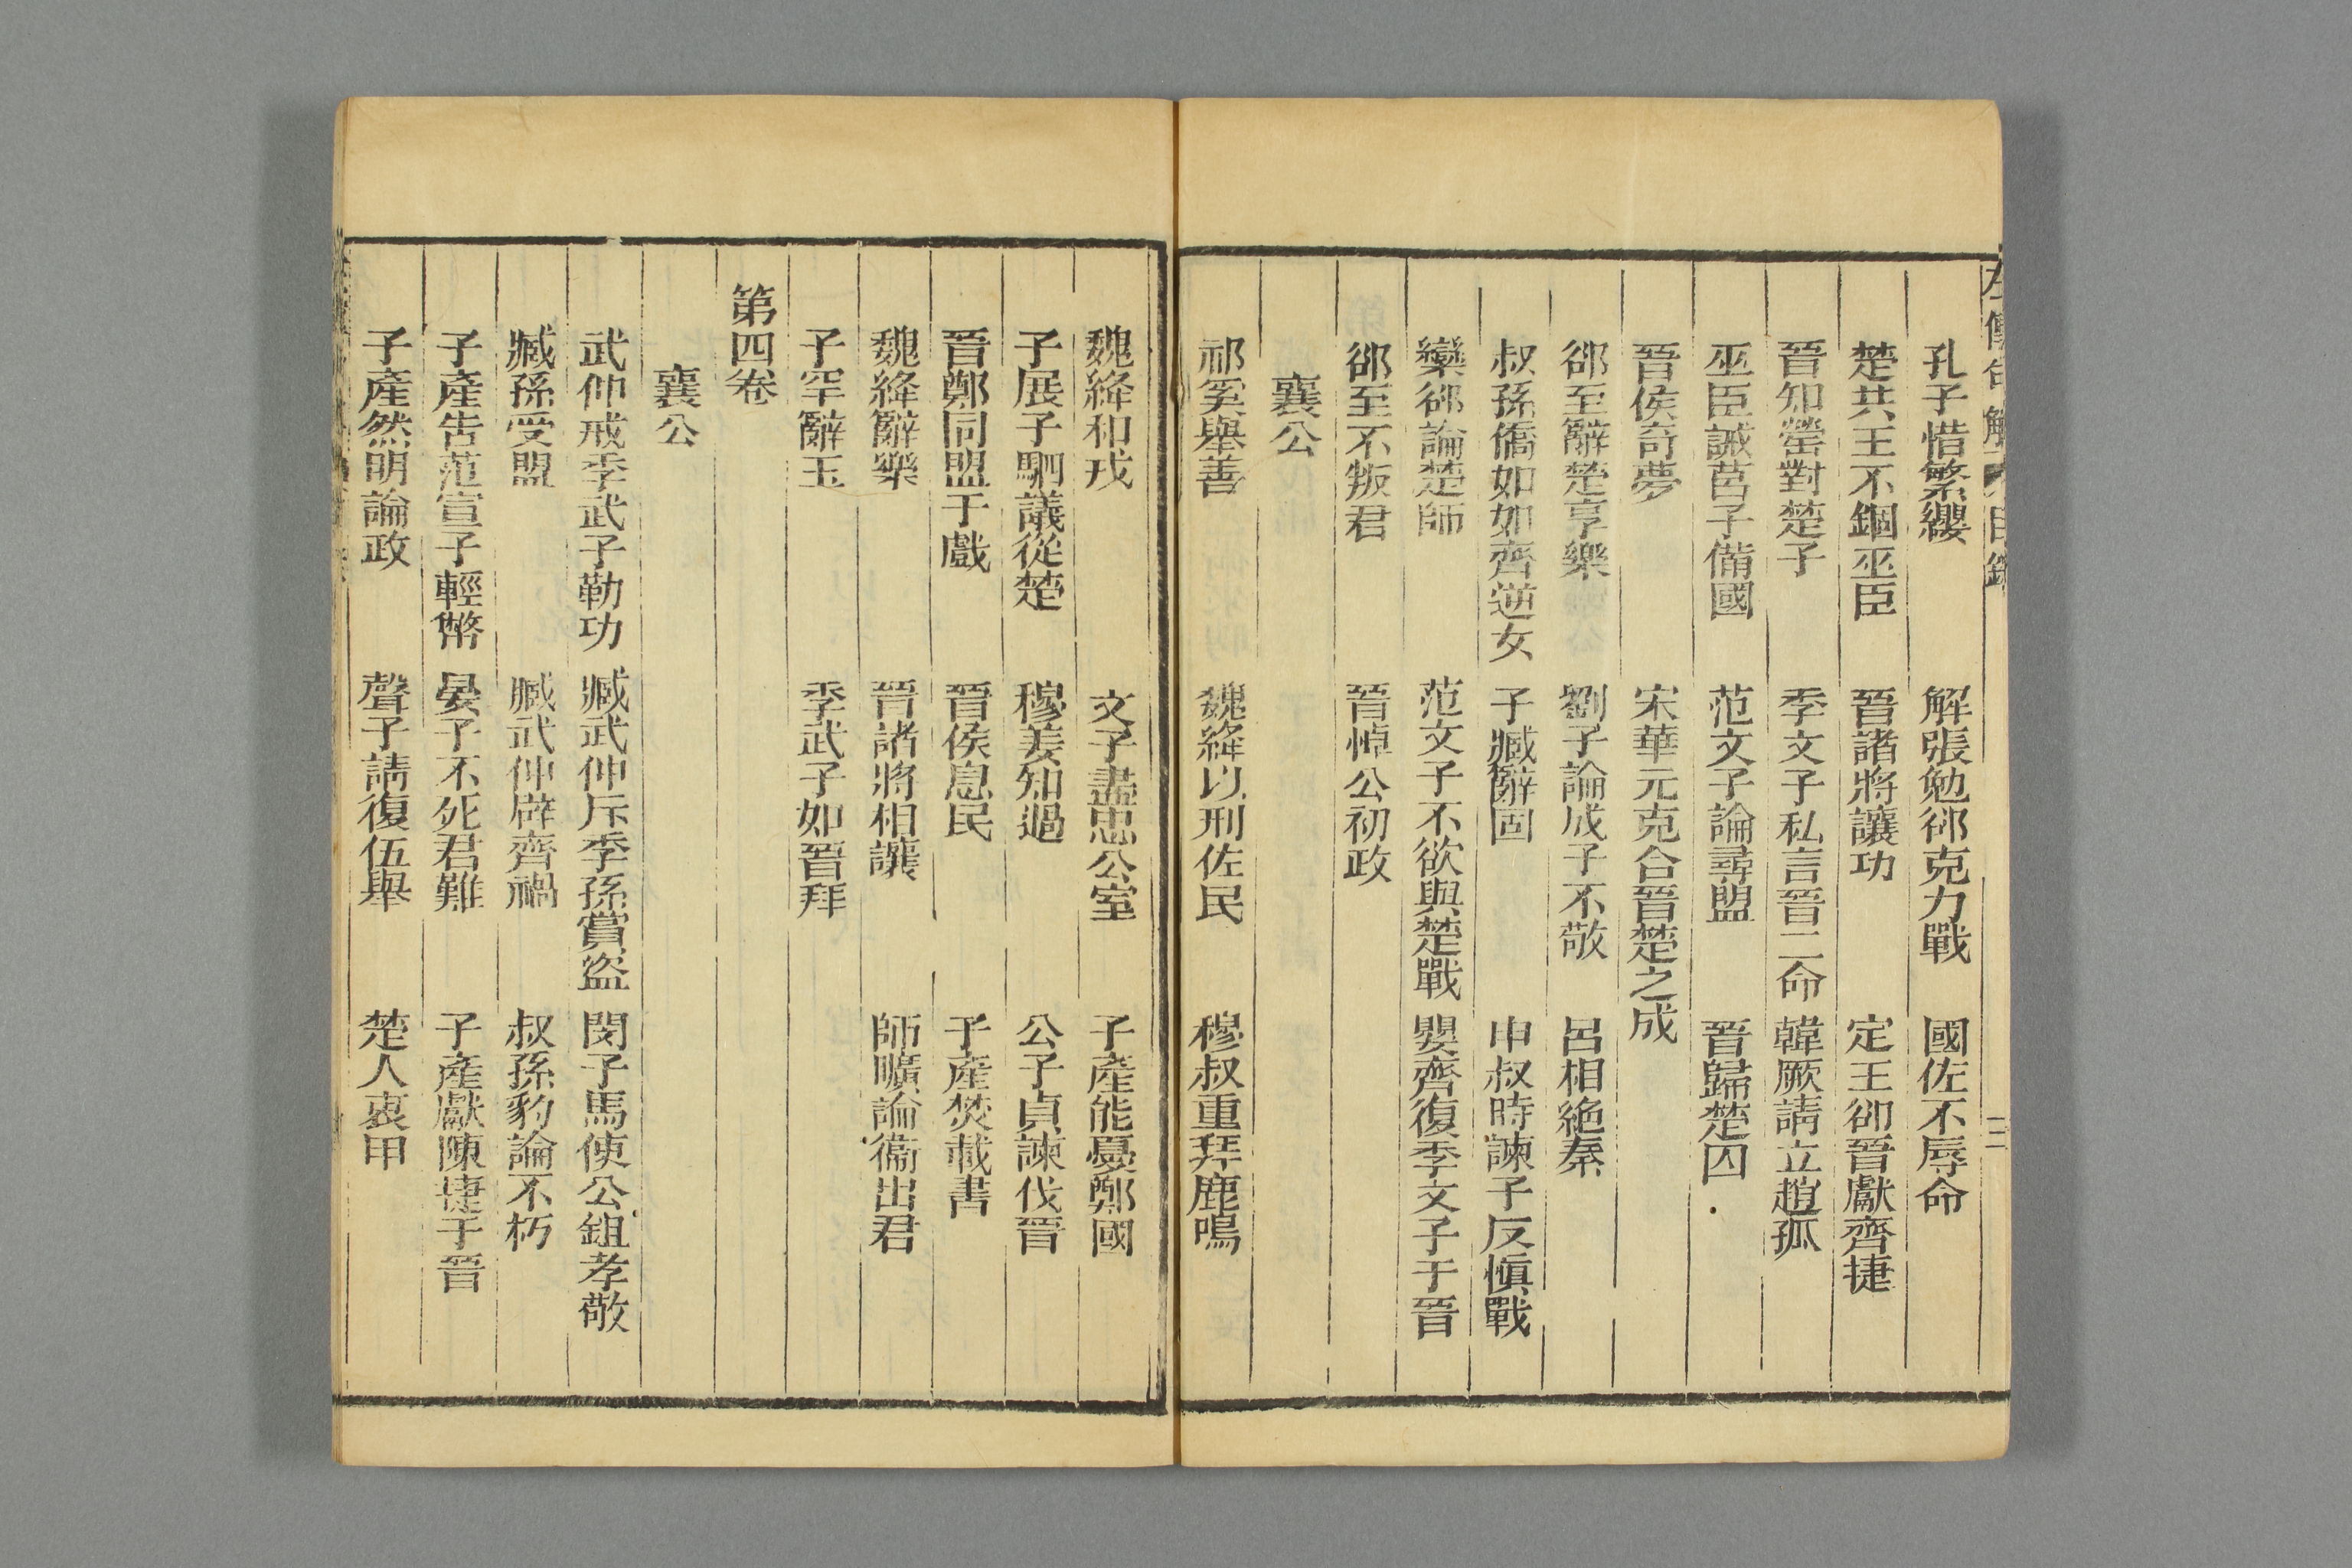 孔子惜繁纓 解張勉郤克力戰 國佐不辱命
楚共王不錮巫臣 晉諸將讓功 定王卻晉獻齊捷
晉知罃對楚子 季文子私言晉二命 韓厥請立趙孤
巫臣誡莒子備國 范文子論尋盟 晉歸楚囚
晉侯奇夢 宋華元克合晉楚之成
郤至辭楚享樂 劉子論成子不敬 呂相絶秦
叔孫僑如如齊逆女 子臧辭國 申叔時諫子反愼戰
欒郤論楚師 范文子不欲與楚戰 嬰齊復季文子于晉
郤至不叛君 晉悼公初政
襄公
祁奚舉善 魏絳以刑佐民 穆叔重拜鹿鳴
魏絳和戎 文子盡忠公室 子產能憂鄭國
子展子駟議從楚 穆姜知過 公子貞諫伐晉
晉鄭同盟于戲 晉侯息民 子產焚載書
魏絳辭樂 晉諸將相讓 師曠論衞出君
子罕辭玉 季武子如晉拜
第四卷
襄公
武仲戒季武子勒功 臧武仲斥季孫賞盜 閔子馬使公鉏孝敬
臧孫受盟 臧武仲辟齊禍 叔孫豹論不朽
子產告范宣子輕幣 晏子不死君難 子產獻陳捷于晉
子產然明論政 聲子請復伍舉 楚人衷甲